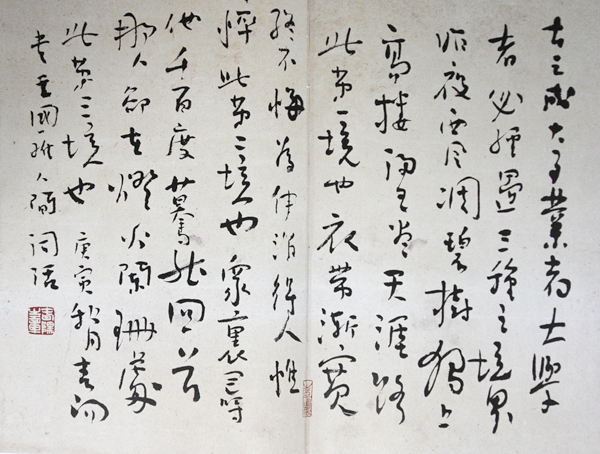 古之成大事業者大學
者必經過三種之境界
昨夜西风凋碧樹獨上
高樓望尽天涯路
此第一境也衣帶漸寬
終不悔為伊消得人憔
悴此第二境也衆裏尋
他千百度驀然回首
那人卻在燈火闌珊處
此第三境也 庚寅秋月
書王國維人間詞話